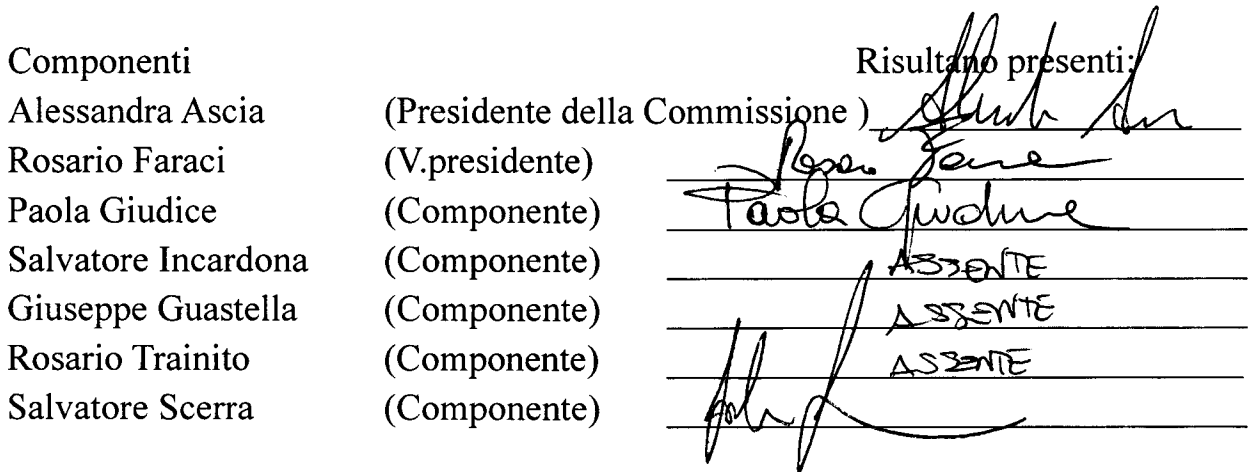 Componenti Risultano presenti:
Alessandra Ascia (Presidente della Commissione )
Rosario Faraci (V.presidente)
Paola Giudice (Componente) Paola Giudice
Salvatore Incardona (Componente) ASSENTE
Giuseppe Guastella (Componente) ASSENTE
Rosario Trainito (Componente) ASSENTE
Salvatore Scerra (Componente)